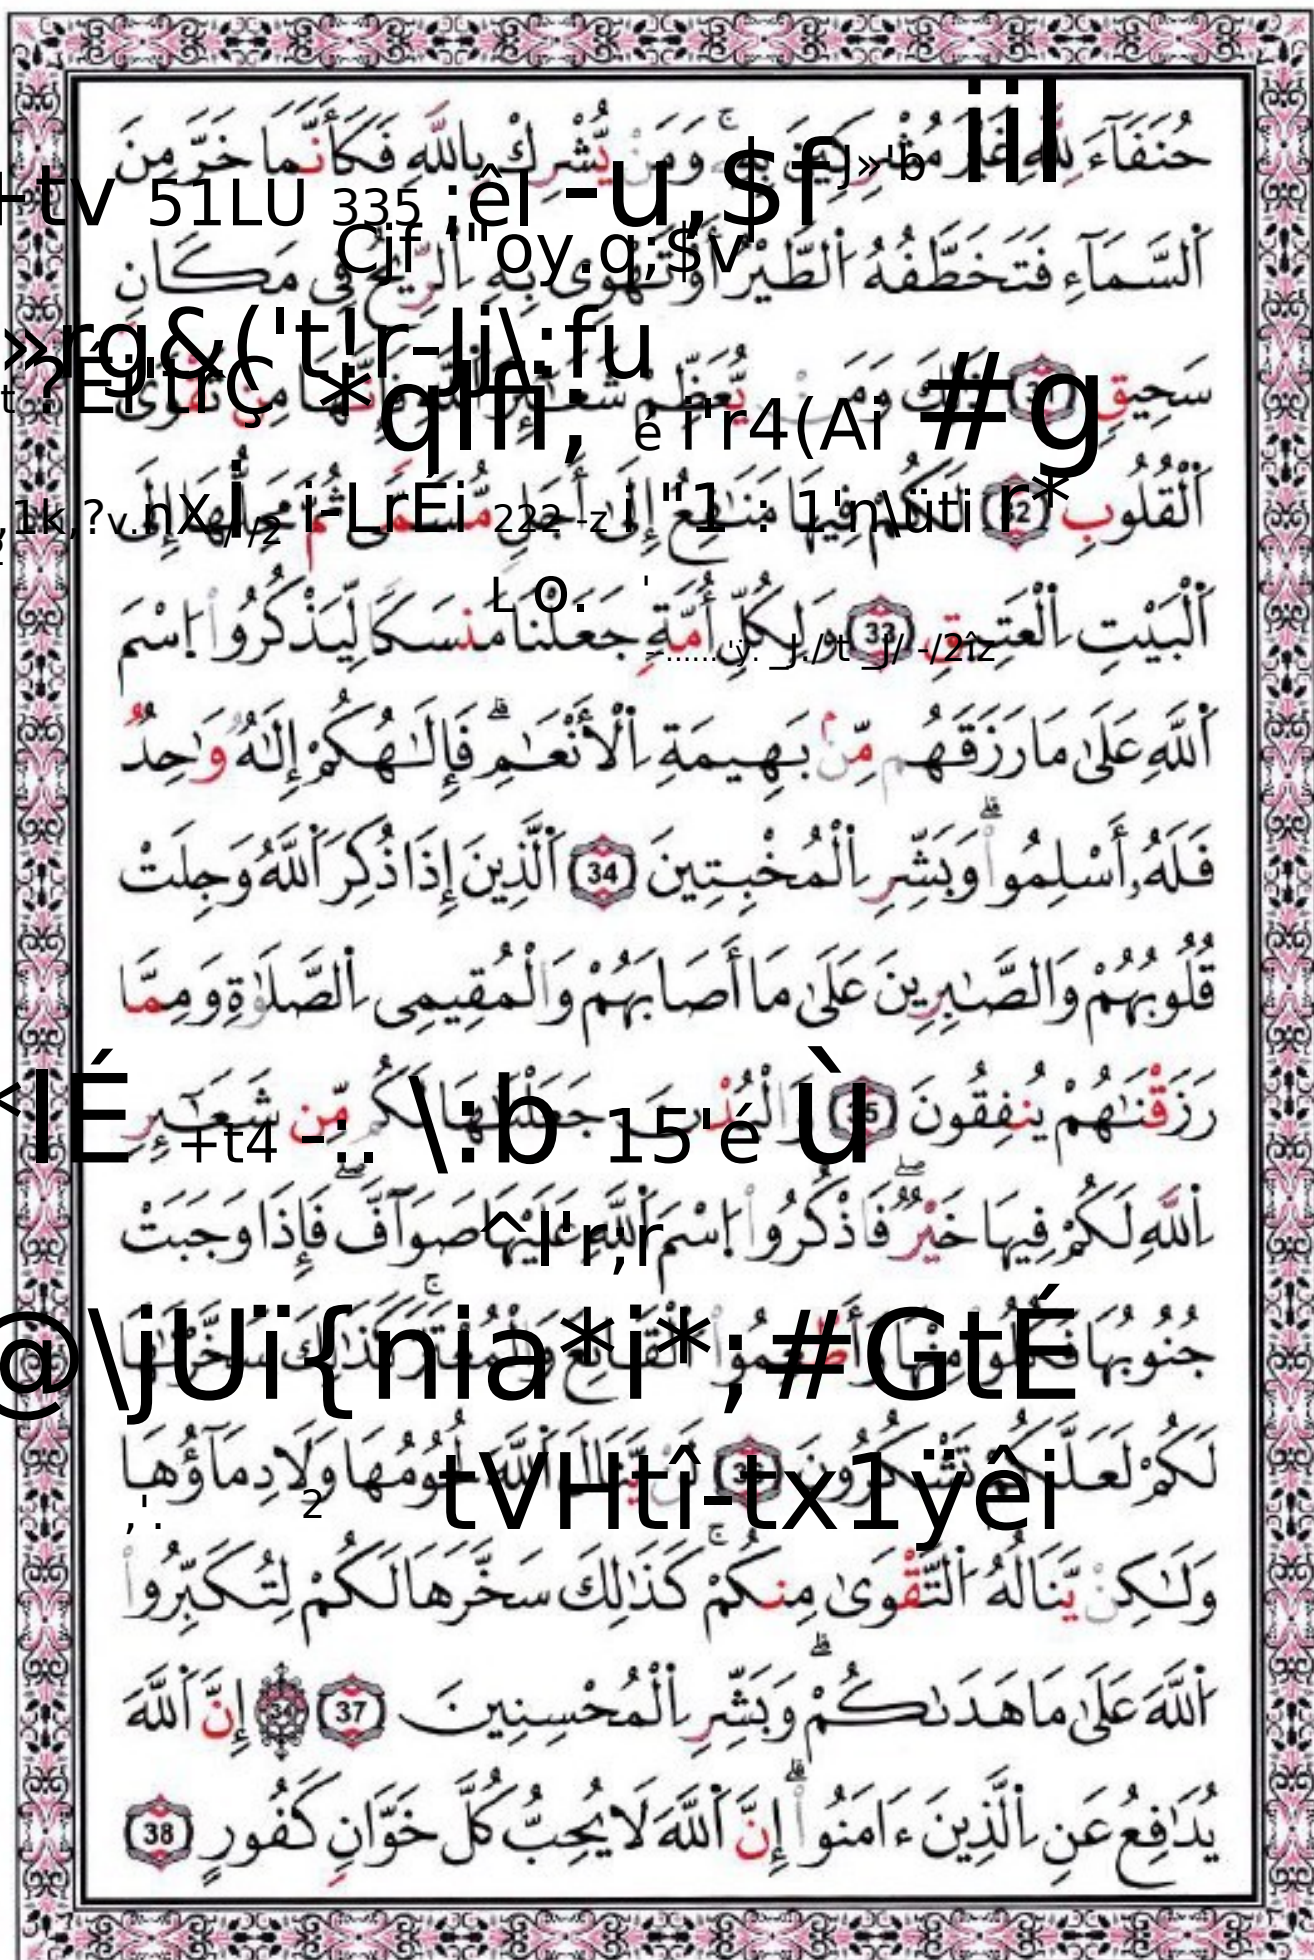 حُنَفَآءَ لِلَّهِ غَيْرَ مُشْرِكِينَ بِهِۦ ۚ وَمَنْ يُّشْرِكْ بِاللَّهِ فَكَأَنَّمَا خَرَّ مِنَ
اَ۬لسَّمَآءِ فَتَخَطَّفُهُ اُ۬لطَّيْرُ أَوْ تَهْوِى بِهِ اِ۬لرِّيحُ فِى مَكَانٍ
سَحِيقٍ 31 ذَٰلِكَ وَمَنْ يُّعَظِّمْ شَعَٰٓئِرَ اَ۬للَّهِ فَإِنَّهَا مِن تَقْوَى
اَ۬لْقُلُوبِ 32 لَكُمْ فِيهَا مَنَٰفِعُ إِلَىٰٓ أَجَلٍ مُّسَمًّى ثُمَّ مَحِلُّهَآ إِلَى
اَ۬لْبَيْتِ اِ۬لْعَتِيقِ 33 وَلِكُلِّ أُمَّةٍ جَعَلْنَا مَنسَكًا لِّيَذْكُرُوا۟ اُ۪سْمَ
اَ۬للَّهِ عَلَىٰ مَا رَزَقَهُم مِّنۢ بَهِيمَةِ اِ۬لْأَنْعَٰمِ ۗ فَإِلَٰهُكُمْ إِلَٰهٌ وَٰحِدٌ
فَلَهُۥٓ أَسْلِمُوا۟ ۗ وَبَشِّرِ اِ۬لْمُخْبِتِينَ 34 اَ۬لَّذِينَ إِذَا ذُكِرَ اَ۬للَّهُ وَجِلَتْ
قُلُوبُهُمْ وَالصَّٰبِرِينَ عَلَىٰ مَآ أَصَابَهُمْ وَالْمُقِيمِى اِ۬لصَّلَوٰةِ وَمِمَّا
رَزَقْنَٰهُمْ يُنفِقُونَ 35 وَالْبُدْنَ جَعَلْنَٰهَا لَكُم مِّن شَعَٰٓئِرِ
اِ۬للَّهِ لَكُمْ فِيهَا خَيْرٌ ۖ فَاذْكُرُوا۟ اُ۪سْمَ اَ۬للَّهِ عَلَيْهَا صَوَآفَّ ۖ فَإِذَا وَجَبَتْ
جُنُوبُهَا فَكُلُوا۟ مِنْهَا وَأَطْعِمُوا۟ اُ۬لْقَانِعَ وَالْمُعْتَرَّ ۚ كَذَٰلِكَ سَخَّرْنَٰهَا
لَكُمْ لَعَلَّكُمْ تَشْكُرُونَ 36 لَنْ يَّنَالَ اَ۬للَّهَ لُحُومُهَا وَلَا دِمَآؤُهَا
وَلَٰكِنْ يَّنَالُهُ اُ۬لتَّقْوَىٰ مِنكُمْ ۚ كَذَٰلِكَ سَخَّرَهَا لَكُمْ لِتُكَبِّرُوا۟
اُ۬للَّهَ عَلَىٰ مَا هَدَىٰكُمْ ۗ وَبَشِّرِ اِ۬لْمُحْسِنِينَ 37 34 إِنَّ اَ۬للَّهَ
يُدَٰفِعُ عَنِ اِ۬لَّذِينَ ءَامَنُوا۟ ۗ إِنَّ اَ۬للَّهَ لَا يُحِبُّ كُلَّ خَوَّانٍ كَفُورٍ 38
iil
J»'b
-u,$f
+tV 51LU 335 ;êl
Cjf '"oy.q;$v
»rg&('t!r-Ij\:fu
*qlfi; é i'r4(Ai #g
i-LrÉi 222 -z i "1 : 1'n\üti r*
L o. '
<lÉ +t4 -:. \:b 15'é Ù
^l'r;r
@\jUï{nia*i*;#GtÉ
tVHtî-tx1ÿêi
,'. 2